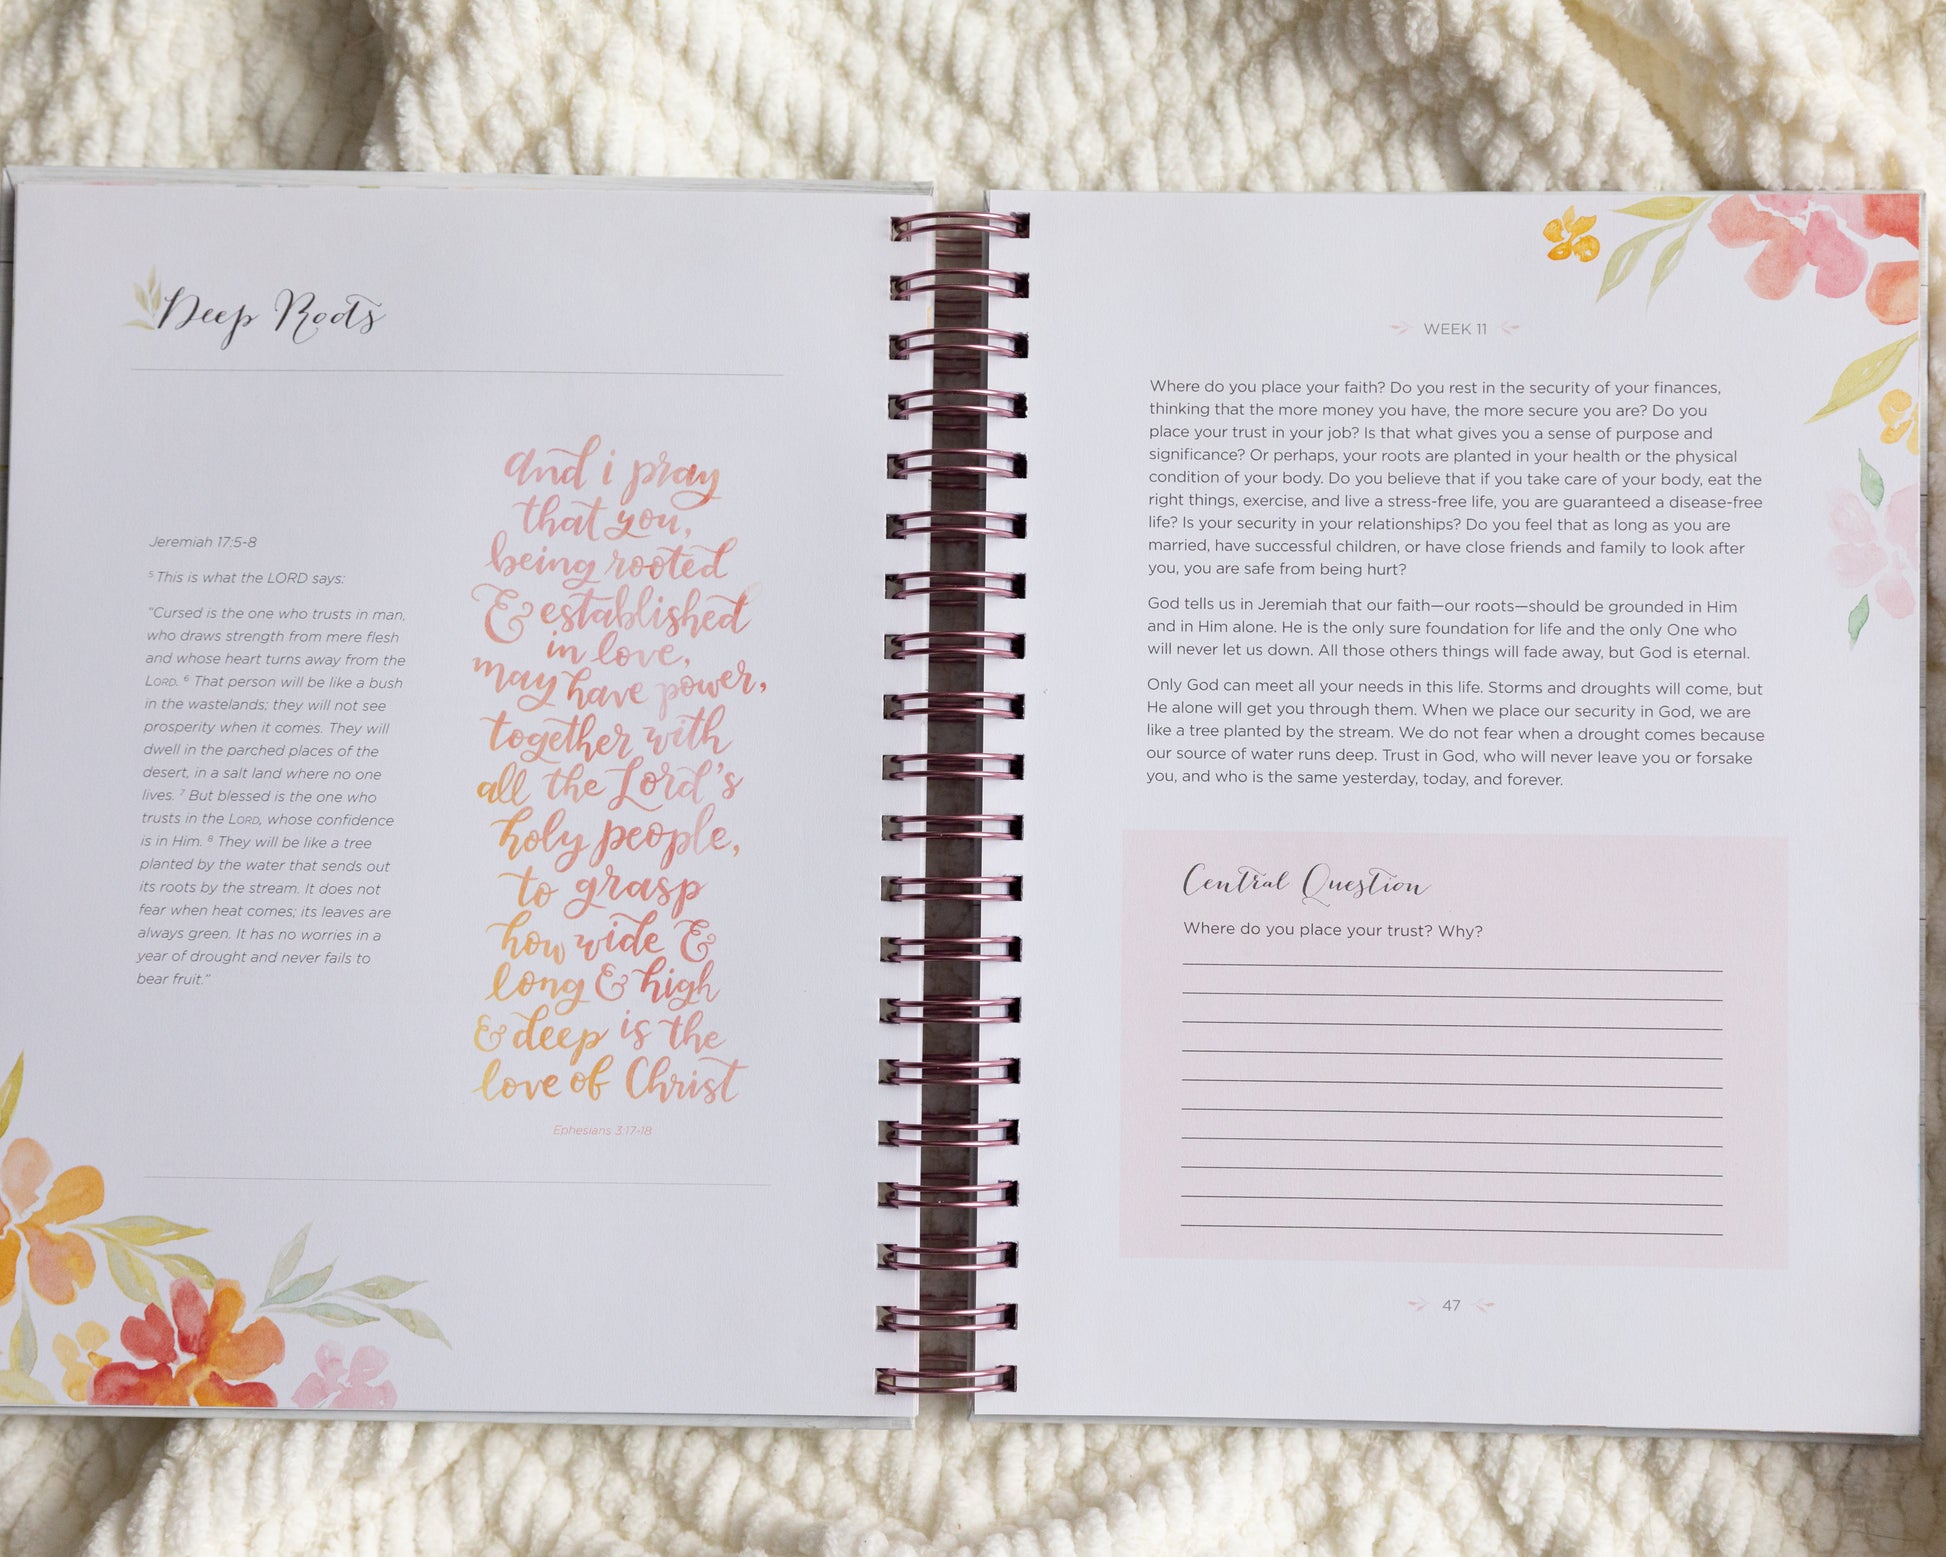 Deep Roots
Jeremiah 17:5-8
5 This is what the LORD says:
“Cursed is the one who trusts in man,
who draws strength from mere flesh
and whose heart turns away from the
LORD. 6 That person will be like a bush
in the wastelands; they will not see
prosperity when it comes. They will
dwell in the parched places of the
desert, in a salt land where no one
lives. 7 But blessed is the one who
trusts in the LORD, whose confidence
is in Him. 8 They will be like a tree
planted by the water that sends out
its roots by the stream. It does not
fear when heat comes; its leaves are
always green. It has no worries in a
year of drought and never fails to
bear fruit.”
and i pray
that you,
being rooted
& established
in love,
may have power,
together with
all the Lord's
holy people,
to grasp
how wide &
long & high
& deep is the
love of Christ
Ephesians 3:17-18
WEEK 11
Where do you place your faith? Do you rest in the security of your finances,
thinking that the more money you have, the more secure you are? Do you
place your trust in your job? Is that what gives you a sense of purpose and
significance? Or perhaps, your roots are planted in your health or the physical
condition of your body. Do you believe that if you take care of your body, eat the
right things, exercise, and live a stress-free life, you are guaranteed a disease-free
life? Is your security in your relationships? Do you feel that as long as you are
married, have successful children, or have close friends and family to look after
you, you are safe from being hurt?
God tells us in Jeremiah that our faith—our roots—should be grounded in Him
and in Him alone. He is the only sure foundation for life and the only One who
will never let us down. All those others things will fade away, but God is eternal.
Only God can meet all your needs in this life. Storms and droughts will come, but
He alone will get you through them. When we place our security in God, we are
like a tree planted by the stream. We do not fear when a drought comes because
our source of water runs deep. Trust in God, who will never leave you or forsake
you, and who is the same yesterday, today, and forever.
Central Question
Where do you place your trust? Why?
47